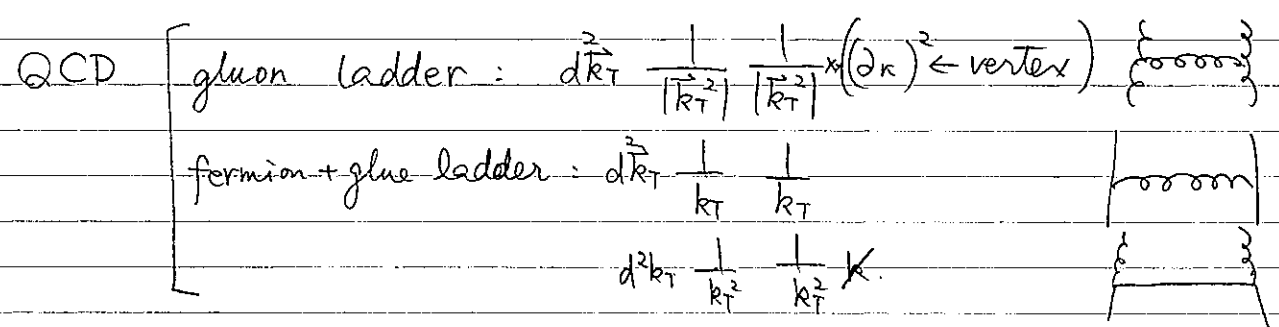 QCD [ gluon ladder : d²k⃗_T 1/|k⃗_T²| 1/|k⃗_T²| × ((∂κ)² ← vertex)
fermion + glue ladder : d²k⃗_T 1/k_T 1/k_T
d²k_T 1/k_T² 1/k_T² k̸.